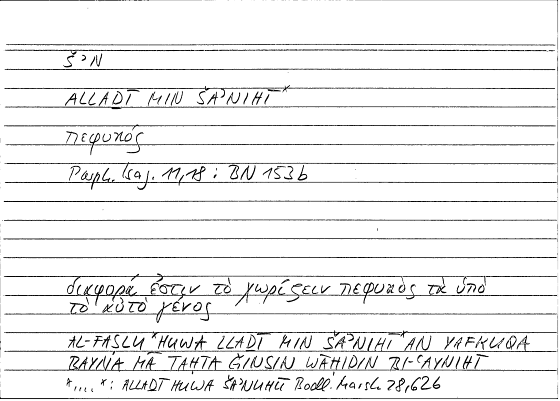 ŠʾN
ALLAḎĪ MIN ŠAʾNIHĪ*
πεφυκός
Porph. Isag. 11,18 : BN 153b
διαφορά ἐστιν τὸ χωρίζειν πεφυκὸς τὰ ὑπὸ
τὸ αὐτὸ γένος
AL-FAṢLU *HUWA LLAḎĪ MIN ŠAʾNIHĪ* AN YAFRUQA
BAYNA MĀ TAḤTA ǦINSIN WĀḤIDIN BI-ʿAYNIHĪ
*....*: ALLAḎĪ HUWA ŠAʾNUHŪ Bodl. Marsh. 28,62b